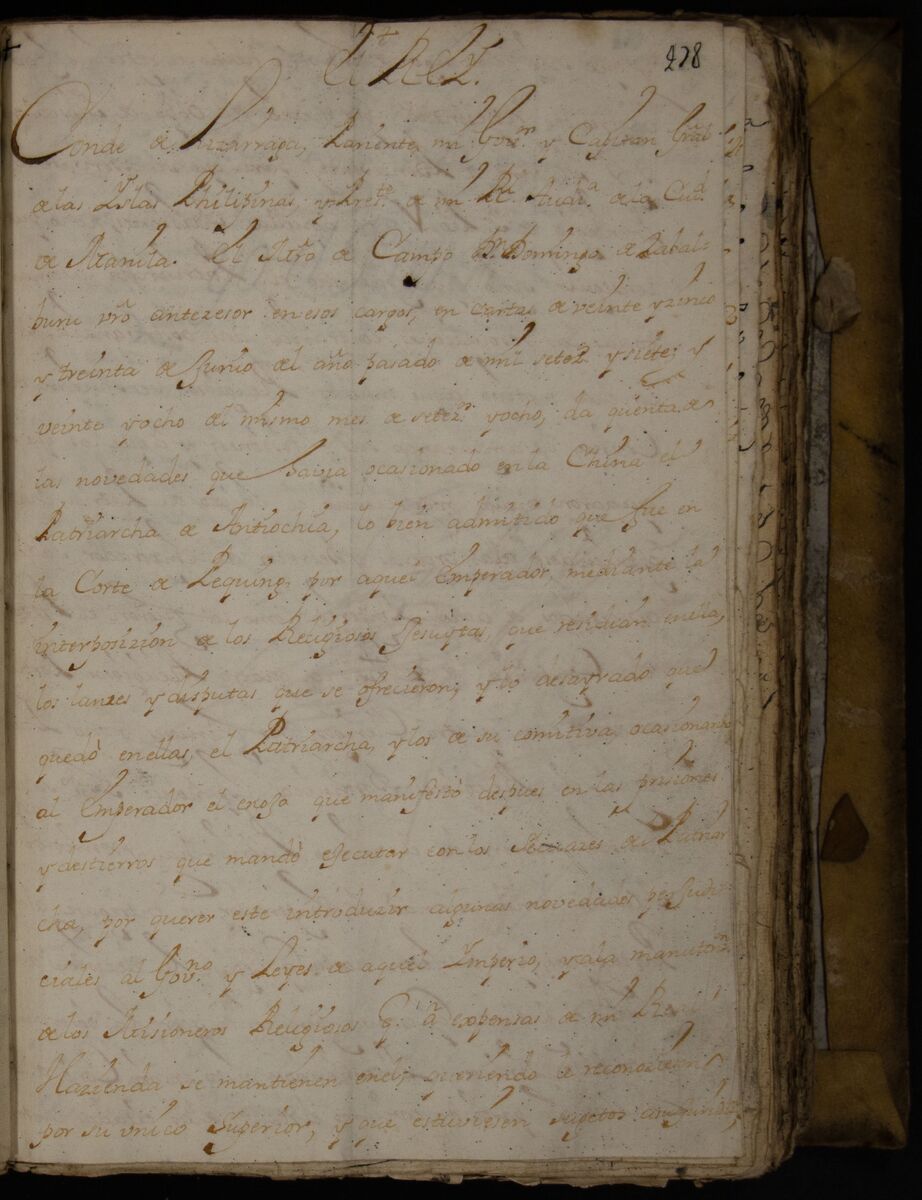 278
El Rey.
Conde de Lizarraga, Pariente, mi Govor. y Capitan Gral
de las Yslas Philipinas, y Preste. de mi Rl. Audia. de la Ciud
de Manila. El Mro de Campo Dn. Domingo de Zabal-
buru vro antezesor en esos cargos, en cartas de veinte y zinco
y treinta de Junio del año pasado de mil setezs. y siete; y
veinte y ocho del mismo mes de setezs. y ocho, da quenta de
las novedades que havia ocasionado en la China el
Patriarcha de Antiochia, lo bien admitido que fue en
la Corte de Pequing, por aquel Emperador, mediante la
interposizion de los Religiosos Jesuytas, que residian en ella,
los lanzes y disputas que se ofrecieron; y lo desayrado que
quedò en ellas, el Patriarcha, y los de su comitiva, ocasionando
al Emperador el enojo que manifestò despues en las prisiones
y destierros que mandò ejecutar con los de Patriar
cha, por querer este introduzir algunas novedades perjudi
ciales al Govno. y Leyes de aquel Ymperio, y a la manuton.
de los Misioneros Religiosos q. à expensas de mi Real
Hazienda se mantienen en el; queriendo le reconociesen
por su vnico Superior, y que estuviesen sugetos